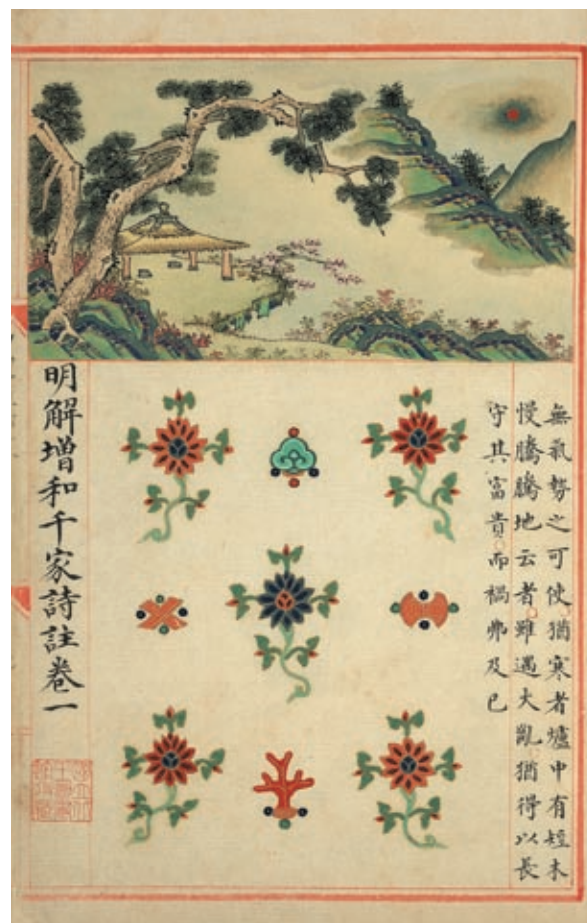 無氣勢之可使猶寒者爐中有短木
慢騰騰地云者雖遇大亂猶得以長
守其富貴而禍弗及已
明解增和千家詩註卷一